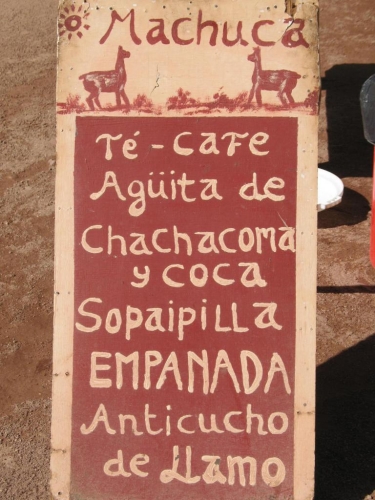 Machuca
Té - CAFE
Agüita de
Chachacoma
y coca
Sopaipilla
EMPANADA
Anticucho
de LLamo